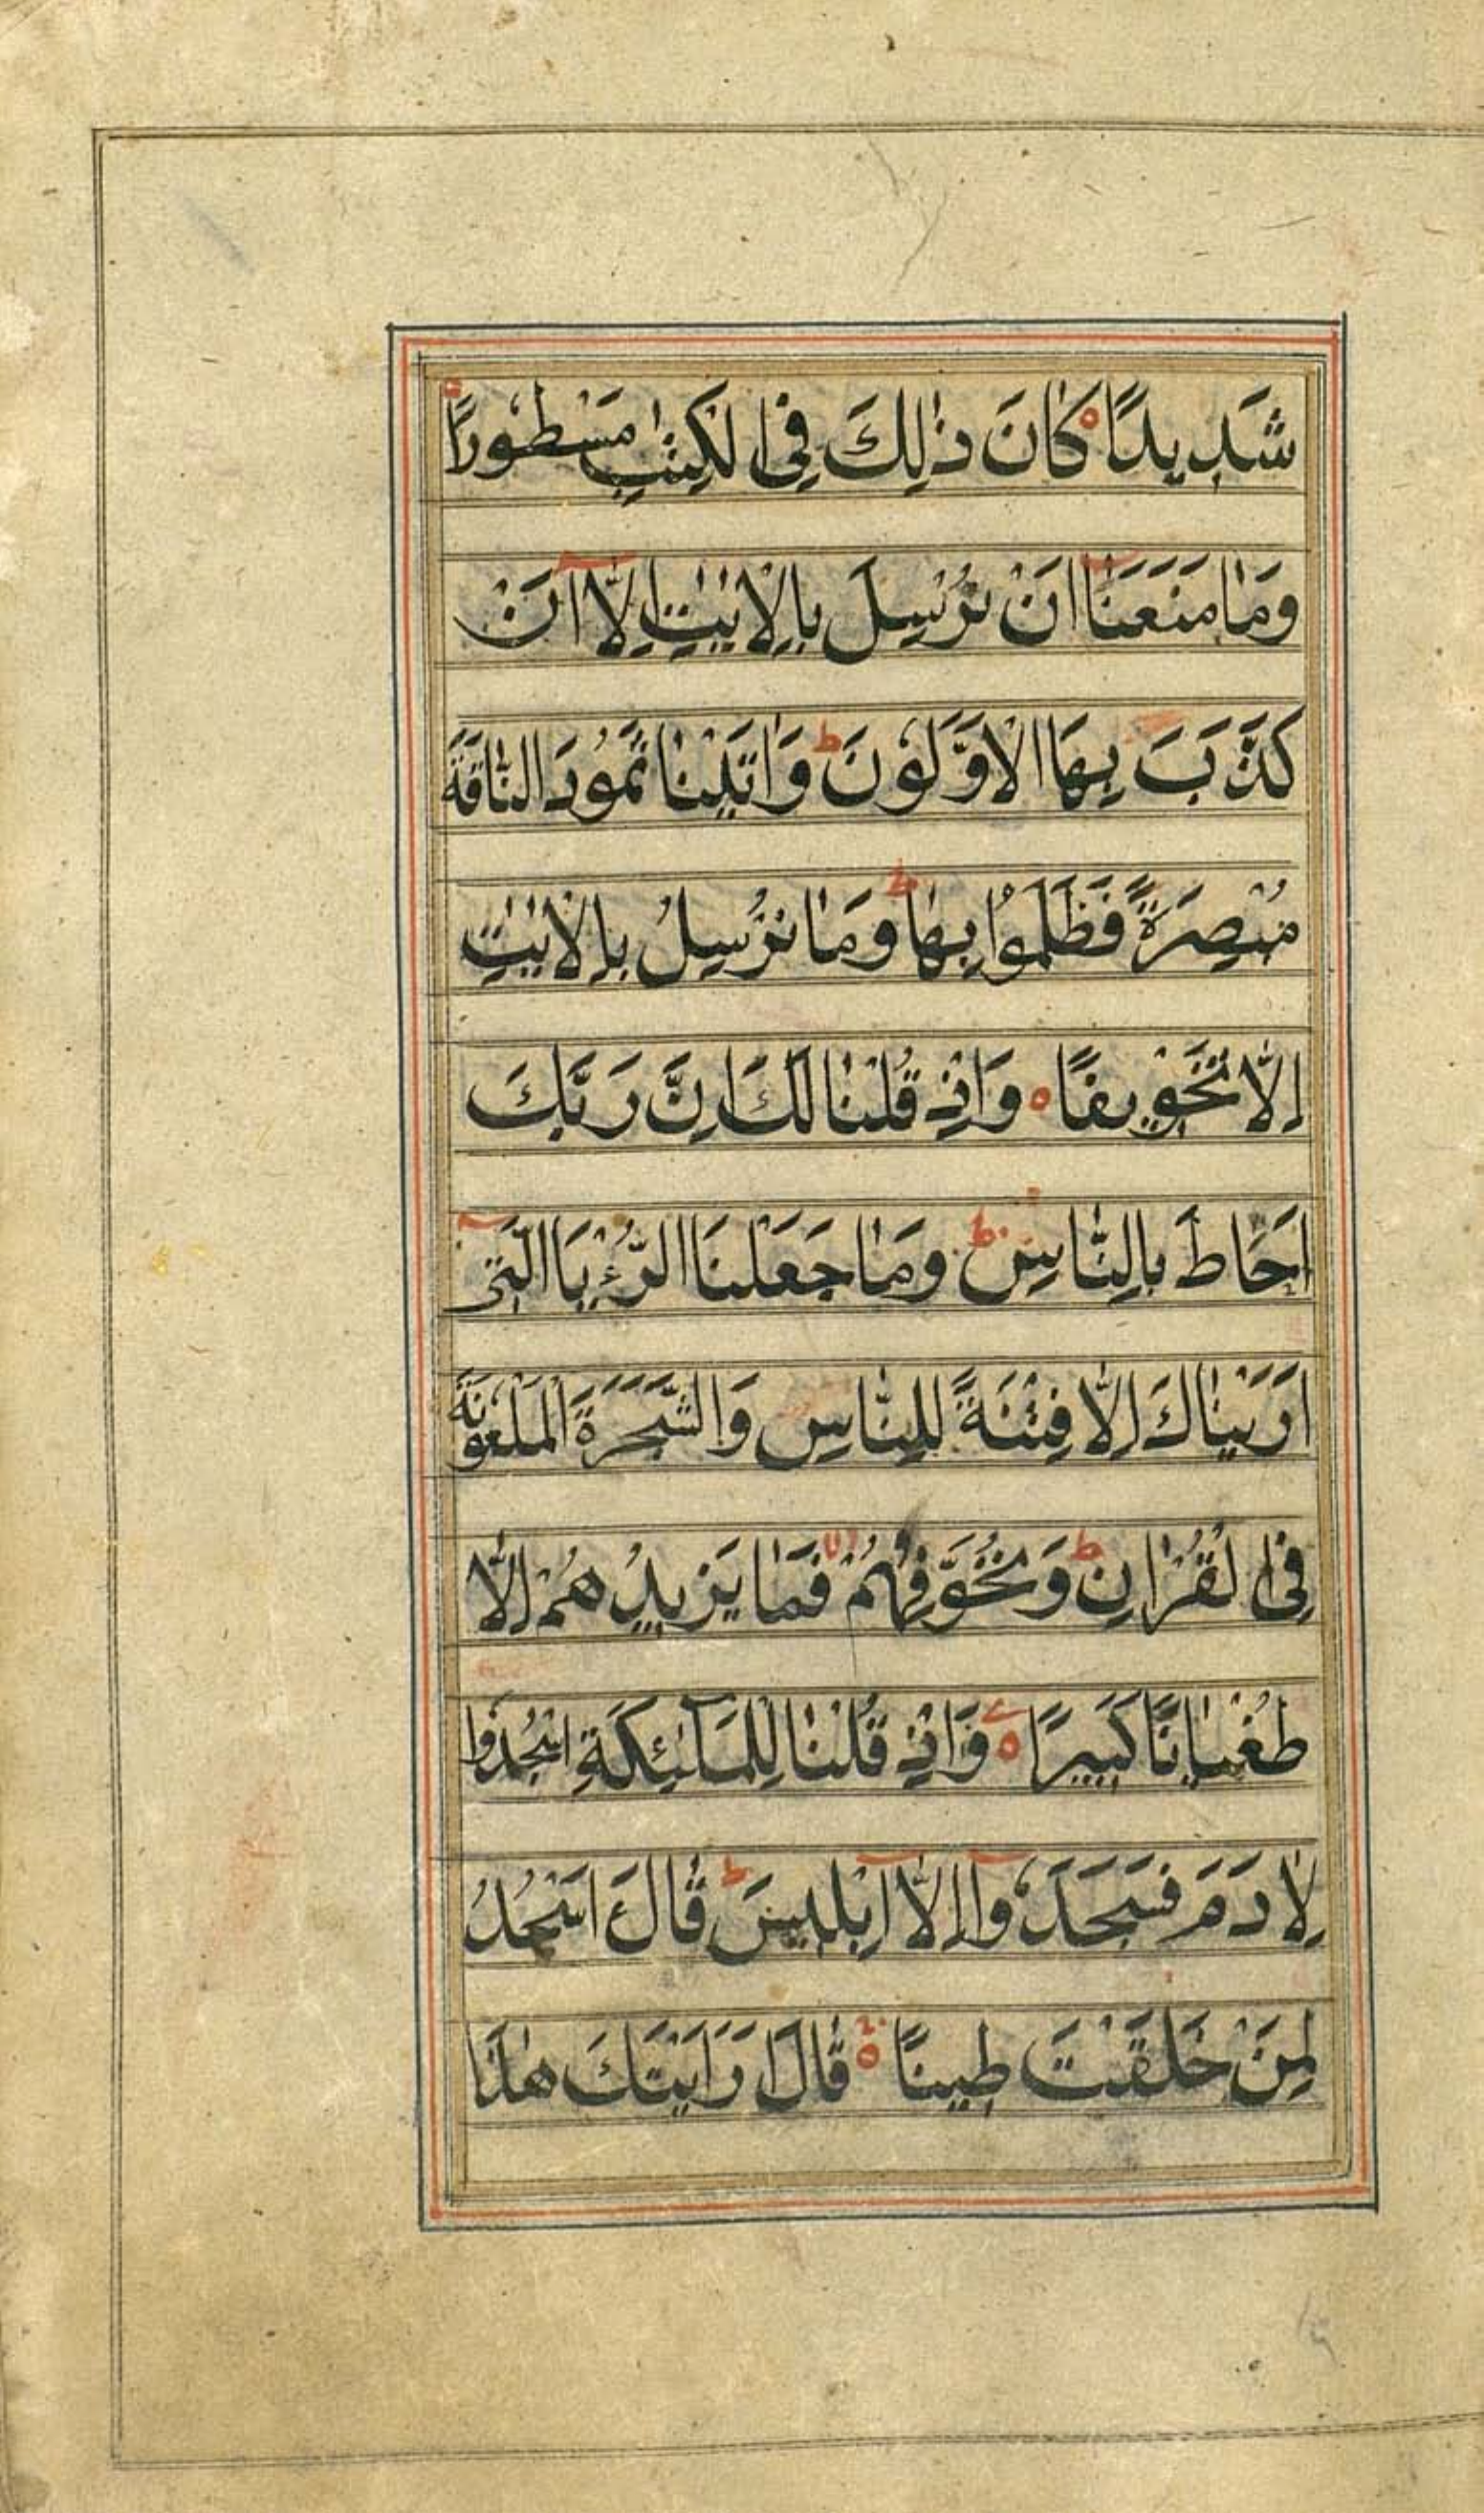 شَدِيدًا كَانَ ذٰلِكَ فِي الْكِتٰبِ مَسْطُورًا
وَمَا مَنَعَنَا اَنْ نُرْسِلَ بِالْاٰيٰتِ اِلَّا اَنْ
كَذَّبَ بِهَا الْاَوَّلُونَ ط وَاٰتَيْنَا ثَمُودَ النَّاقَةَ
مُبْصِرَةً فَظَلَمُوا بِهَا ط وَمَا نُرْسِلُ بِالْاٰيٰتِ
اِلَّا تَخْوِيفًا ه وَاِذْ قُلْنَا لَكَ اِنَّ رَبَّكَ
اَحَاطَ بِالنَّاسِ ط وَمَا جَعَلْنَا الرُّءْيَا الَّتِي
اَرَيْنَاكَ اِلَّا فِتْنَةً لِلنَّاسِ وَالشَّجَرَةَ الْمَلْعُونَةَ
فِي الْقُرْاٰنِ ط وَنُخَوِّفُهُمْ لا فَمَا يَزِيدُهُمْ اِلَّا
طُغْيَانًا كَبِيرًا ه وَاِذْ قُلْنَا لِلْمَلٰٓئِكَةِ اسْجُدُوا
لِاٰدَمَ فَسَجَدُوٓا اِلَّآ اِبْلِيسَ ط قَالَ ءَاَسْجُدُ
لِمَنْ خَلَقْتَ طِينًا ه قَالَ اَرَاَيْتَكَ هٰذَا